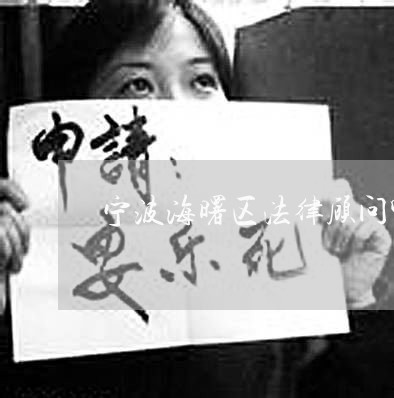 申請：
宁波海曙区法律顾问
安乐死